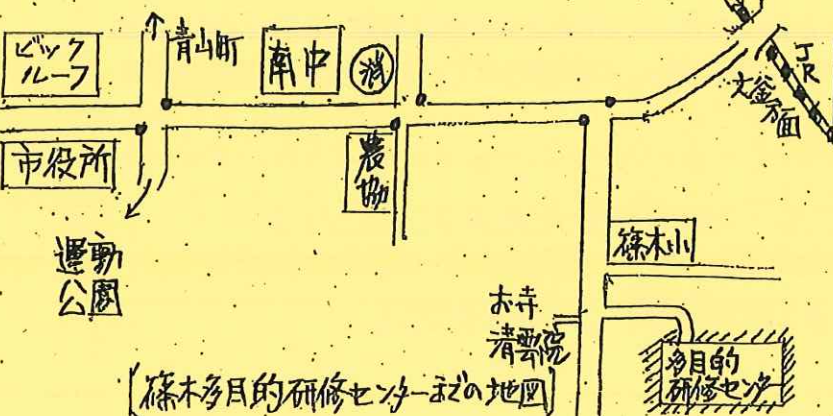 ビック
ルーフ
青山町
南中
消
JR
大釜方面
市役所
農協
運動
公園
篠木小
お寺
清雲院
多目的
研修センター
[篠木多目的研修センターまでの地図]